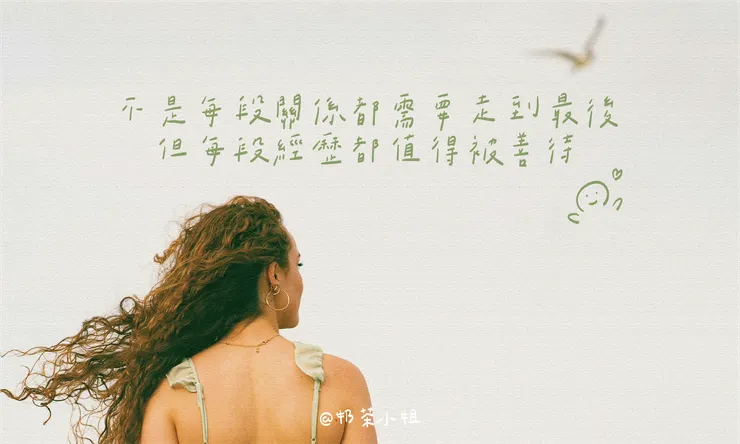 不是每段關係都需要走到最後
但每段經歷都值得被善待
@奶茶小姐